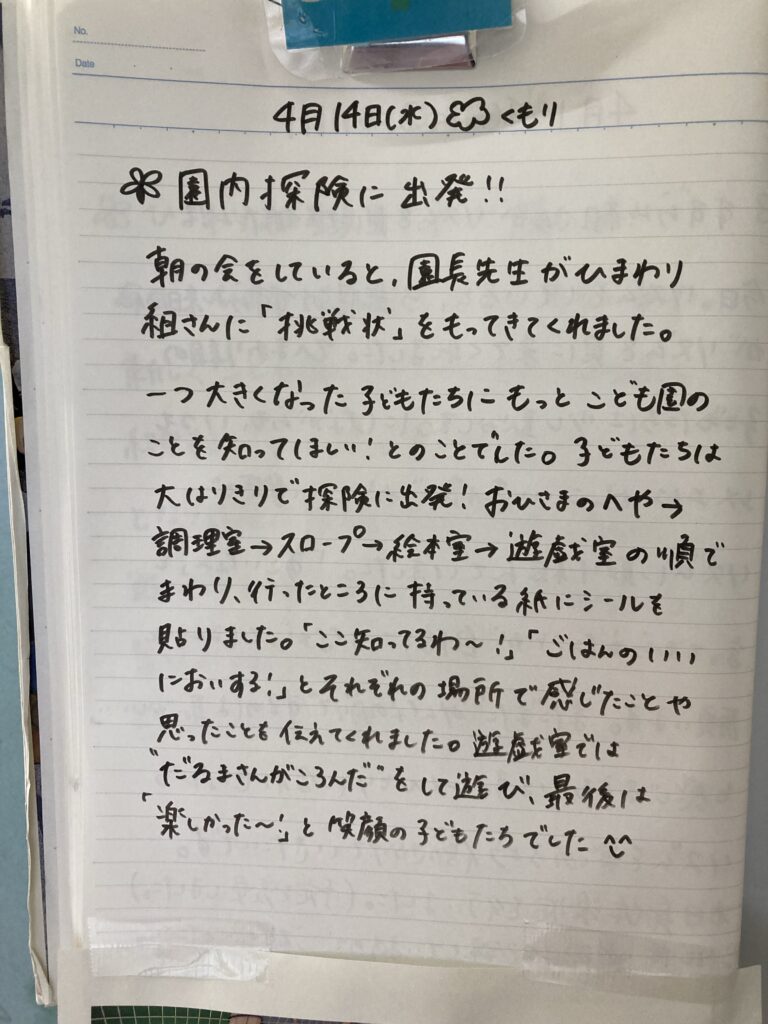 No.
Date
4月14日(水) くもり
園内探険に出発!!
朝の会をしていると、園長先生がひまわり
組さんに「挑戦状」をもってきてくれました。
一つ大きくなった子どもたちにもっとこども園の
ことを知ってほしい!とのことでした。子どもたちは
大はりきりで探険に出発!おひさまのへや→
調理室→スロープ→絵本室→遊戯室の順で
まわり、行ったところに持っている紙にシールを
貼りました。「ここ知ってるわ〜!」「ごはんのいい
においする!」とそれぞれの場所で感じたことや
思ったことを伝えてくれました。遊戯室では
"だるまさんがころんだ"をして遊び、最後は
「楽しかった〜!」と笑顔の子どもたちでした